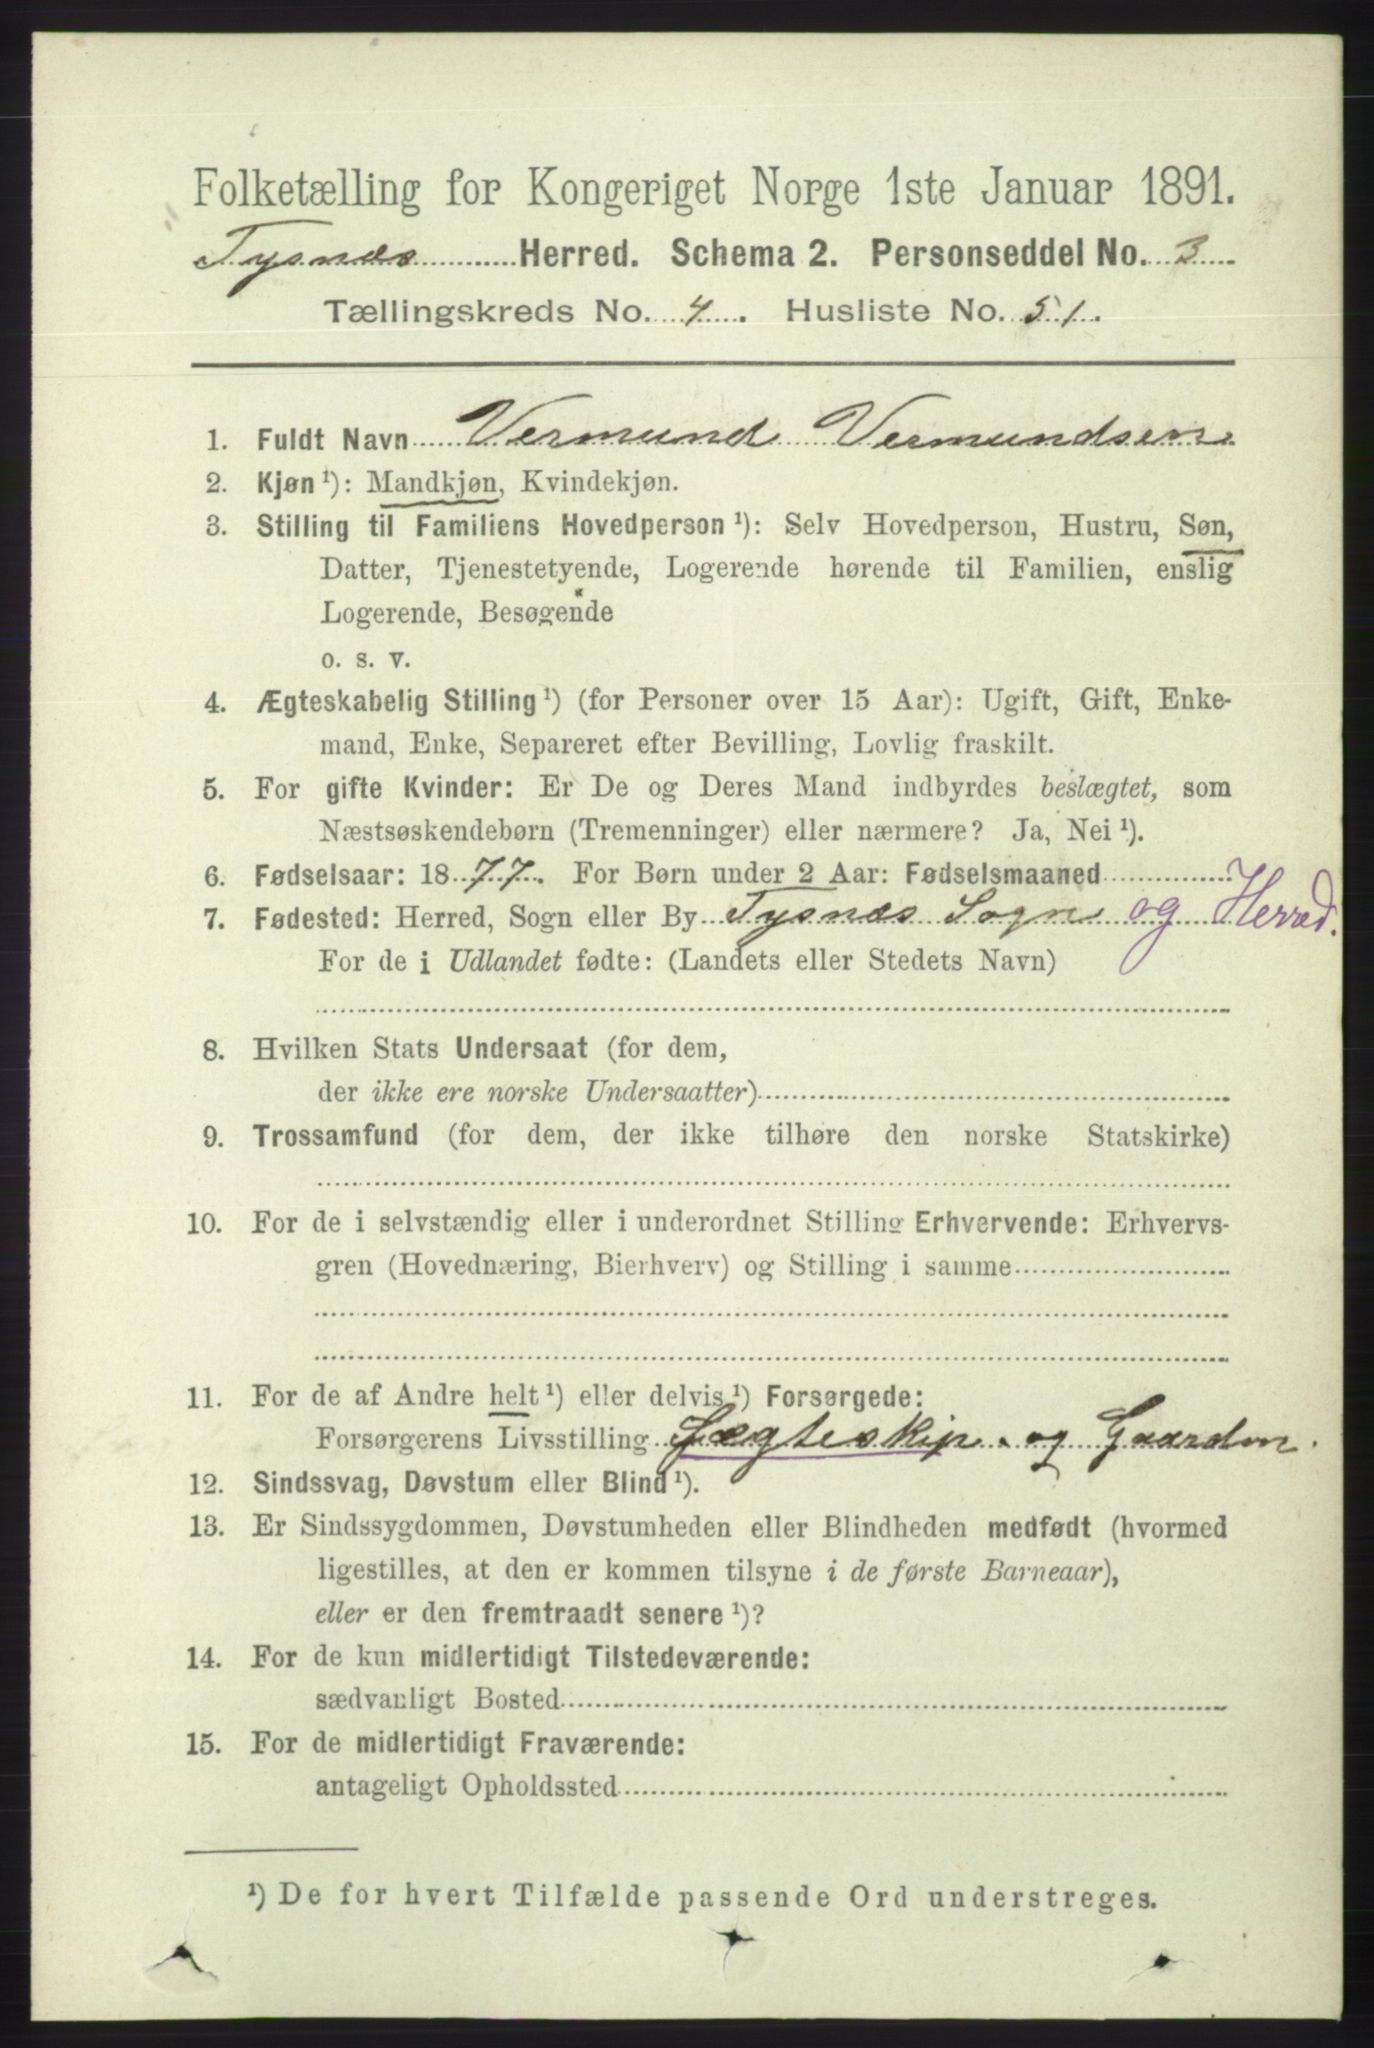 Folketælling for Kongeriget Norge 1ste Januar 1891.
Tysnæs Herred. Schema 2. Personseddel No. 3
Tællingskreds No. 4. Husliste No. 51.
1. Fuldt Navn Vermund Vermundsen
2. Kjøn ¹): Mandkjøn, Kvindekjøn.
3. Stilling til Familiens Hovedperson ¹): Selv Hovedperson, Hustru, Søn,
Datter, Tjenestetyende, Logerende hørende til Familien, enslig
Logerende, Besøgende
o. s. v.
4. Ægteskabelig Stilling ¹) (for Personer over 15 Aar): Ugift, Gift, Enke-
mand, Enke, Separeret efter Bevilling, Lovlig fraskilt.
5. For gifte Kvinder: Er De og Deres Mand indbyrdes beslægtet, som
Næstsøskendebørn (Tremenninger) eller nærmere? Ja, Nei ¹).
6. Fødselsaar: 1877. For Børn under 2 Aar: Fødselsmaaned
7. Fødested: Herred, Sogn eller By Tysnæs Sogn og Herred.
For de i Udlandet fødte: (Landets eller Stedets Navn)
8. Hvilken Stats Undersaat (for dem,
der ikke ere norske Undersaatter)
9. Trossamfund (for dem, der ikke tilhøre den norske Statskirke)
10. For de i selvstændig eller i underordnet Stilling Erhvervende: Erhvervs-
gren (Hovednæring, Bierhverv) og Stilling i samme
11. For de af Andre helt ¹) eller delvis ¹) Forsørgede:
Forsørgerens Livsstilling Jægteskip. og Gaardm.
12. Sindssvag, Døvstum eller Blind ¹).
13. Er Sindssygdommen, Døvstumheden eller Blindheden medfødt (hvormed
ligestilles, at den er kommen tilsyne i de første Barneaar),
eller er den fremtraadt senere ¹)?
14. For de kun midlertidigt Tilstedeværende:
sædvanligt Bosted
15. For de midlertidigt Fraværende:
antageligt Opholdssted
¹) De for hvert Tilfælde passende Ord understreges.